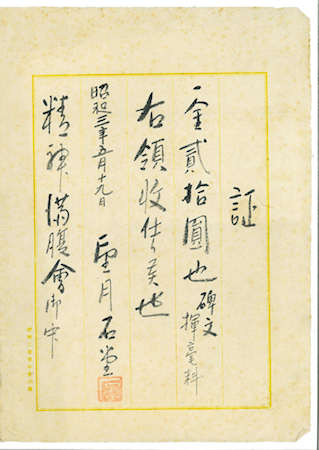 証
一金貳拾圓也 碑文揮毫料
右領收仕候也
昭和三年五月十九日
望月石堂
精神満腹會御中